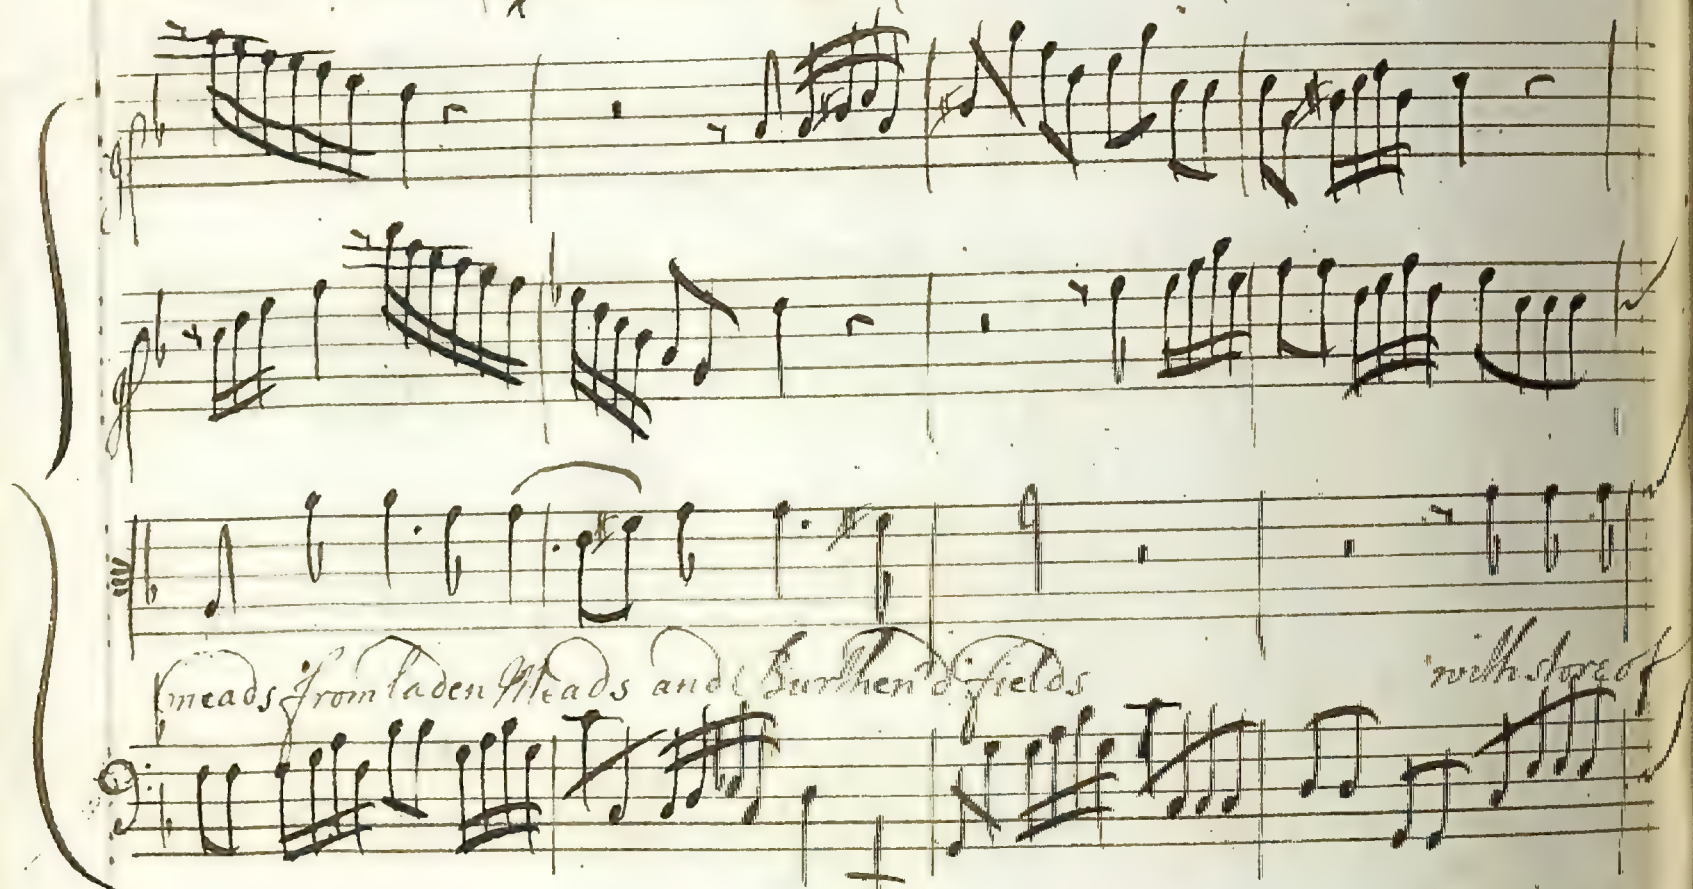 meads from laden Meads and Burthen'd fields with store of